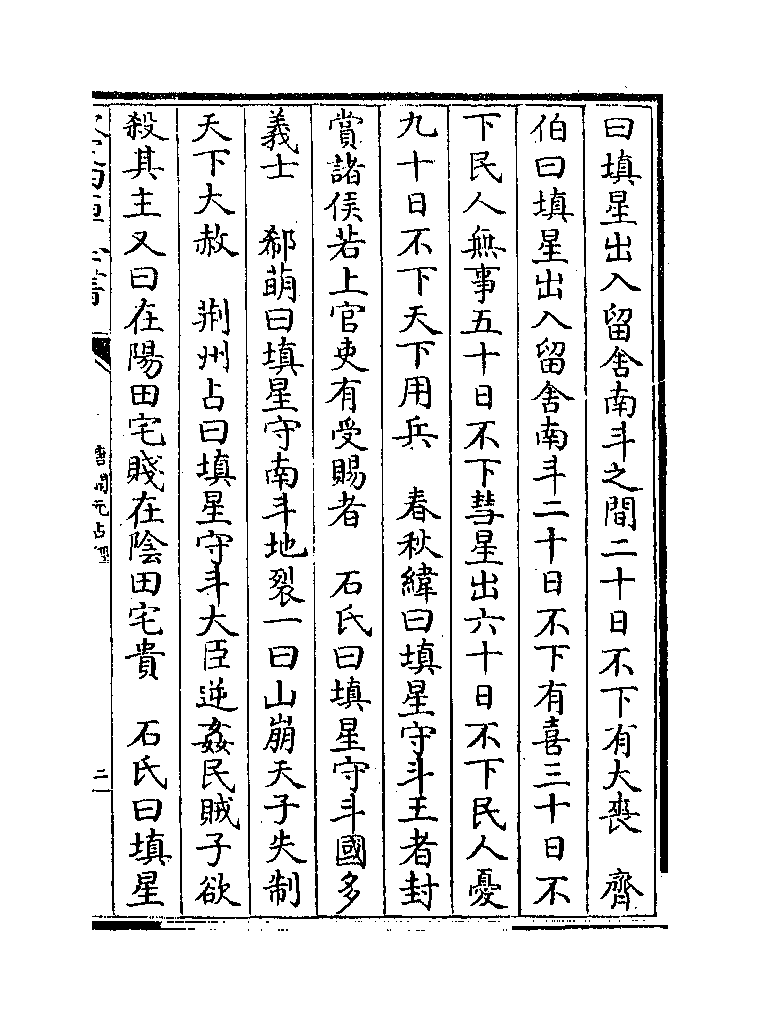 曰填星出入留舍南斗之間二十日不下有大喪　齊
伯曰填星出入留舍南斗二十日不下有喜三十日不
下民人無事五十日不下彗星出六十日不下民人憂
九十日不下天下用兵　春秋緯曰填星守斗王者封
賞諸侯若上官吏有受賜者　石氏曰填星守斗國多
義士　郗萌曰填星守南斗地裂一曰山崩天子失制
天下大赦　荆州占曰填星守斗大臣逆姦民賊子欲
殺其主又曰在陽田宅賤在陰田宅貴　石氏曰填星
唐開元占經
二